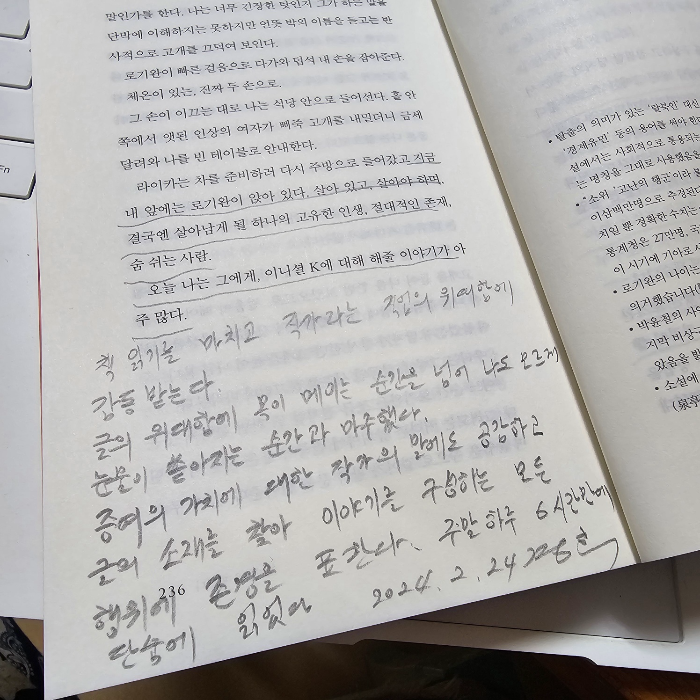 말인가를 한다. 나는 너무 긴장한 탓인지 그가 하는 말을
단박에 이해하지는 못하지만 언뜻 박의 이름을 듣고는 반
사적으로 고개를 끄덕여 보인다.
로기완이 빠른 걸음으로 다가와 덥석 내 손을 잡아준다.
체온이 있는, 진짜 두 손으로.
그 손이 이끄는 대로 나는 식당 안으로 들어선다. 홀 안
쪽에서 앳된 인상의 여자가 빼죽 고개를 내밀더니 금세
달려와 나를 빈 테이블로 안내한다.
라이카는 차를 준비하러 다시 주방으로 들어갔고 지금
내 앞에는 로기완이 앉아 있다. 살아 있고, 살아야 하며,
결국엔 살아남게 될 하나의 고유한 인생, 절대적인 존재,
숨 쉬는 사람.
오늘 나는 그에게, 이니셜 K에 대해 해줄 이야기가 아
주 많다.
책 읽기를 마치고 작가라는 직업의 위대함에
감동 받는다.
글의 위대함에 목이 메이는 순간을 넘어 나도 모르게
눈물이 쏟아지는 순간과 마주했다.
증여의 가치에 대한 작가의 말에도 공감하고
글의 소재를 찾아 이야기를 구성하는 모든
행위에 존경을 표한다. 주말 하루 6시간만에
단숨에 읽었다 2024. 2. 24
236
• 탈출의 의미가 있는 '탈북인' 대신
'경제유민' 등의 용어를 써야 한
설에서는 사회적으로 통용되
는 명칭을 그대로 사용했음을
• 소위 '고난의 행군'이라 불
이삼백만명으로 추정된
치일 뿐 정확한 수치는
통계청은 27만명, 국
이 시기에 기아로 사
• 로기완의 나이는
의지했습니다
• 박윤철의 사
지막 비상구
있음을 밝
• 소설에